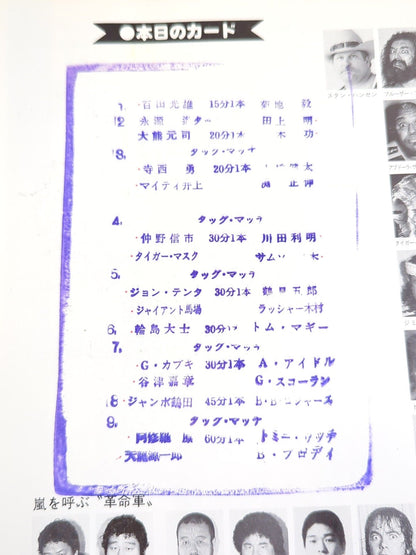 ●本日のカード
1. 百田光雄 15分1本 菊地 毅
2 永源 遙 タッ 田上 明
大熊元司 20分1本 木 功
3. タッグ・マッチ
・寺西 勇 20分1本 太
・マイティ井上 渕 正伸
4. タッグ・マッチ
・仲野信市 30分1本 川田利明
・タイガー・マスク サム
5. タッグ・マッチ
・ジョン・テンタ 30分1本 鶴見五郎
・ジャイアント馬場 ラッシャー木村
6. 輪島大士 30分 トム・マギー
7. タッグ・マッチ
・G・カブキ 30分1本 A・アイドル
・谷津嘉章 G・スコーラン
8 ジャンボ鶴田 45分1本
9. タッグ・マッチ
・阿修羅 原 60分1本 トミー・リッチ
天龍源一郎 B・ブロディ
嵐を呼ぶ〝革命軍〟
スタン・ハンセン